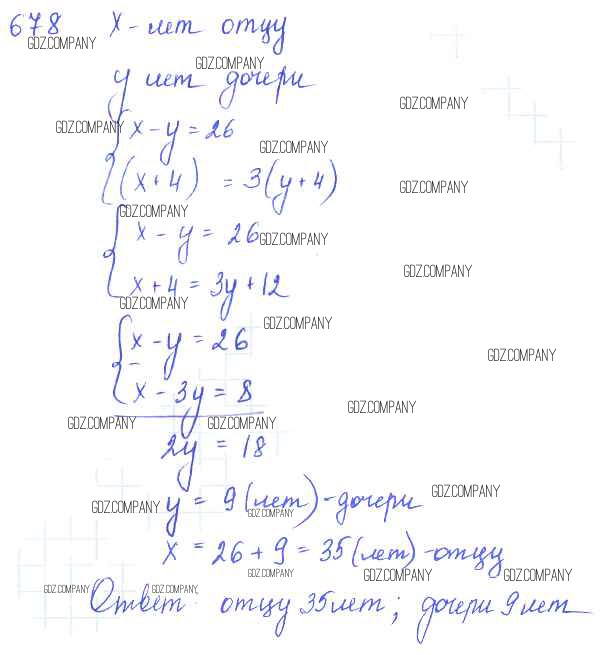 678 x - лет отцу
GDZ.COMPANY
GDZ.COMPANY
y лет дочери
GDZ.COMPANY
GDZ.COMPANY
x - y = 26
GDZ.COMPANY
(x + 4) = 3(y + 4)
GDZ.COMPANY
GDZ.COMPANY
x - y = 26
GDZ.COMPANY
GDZ.COMPANY
x + 4 = 3y + 12
GDZ.COMPANY
GDZ.COMPANY
x - y = 26
GDZ.COMPANY
-
x - 3y = 8
GDZ.COMPANY
GDZ.COMPANY GDZ.COMPANY
2y = 18
GDZ.COMPANY
y = 9 (лет) - дочери
GDZ.COMPANY
GDZ.COMPANY
x = 26 + 9 = 35 (лет) - отцу
GDZ.COMPANY GDZ.COMPANY GDZ.COMPANY
GDZ.COMPANY GDZ.COMPANY
Ответ: отцу 35 лет; дочери 9 лет